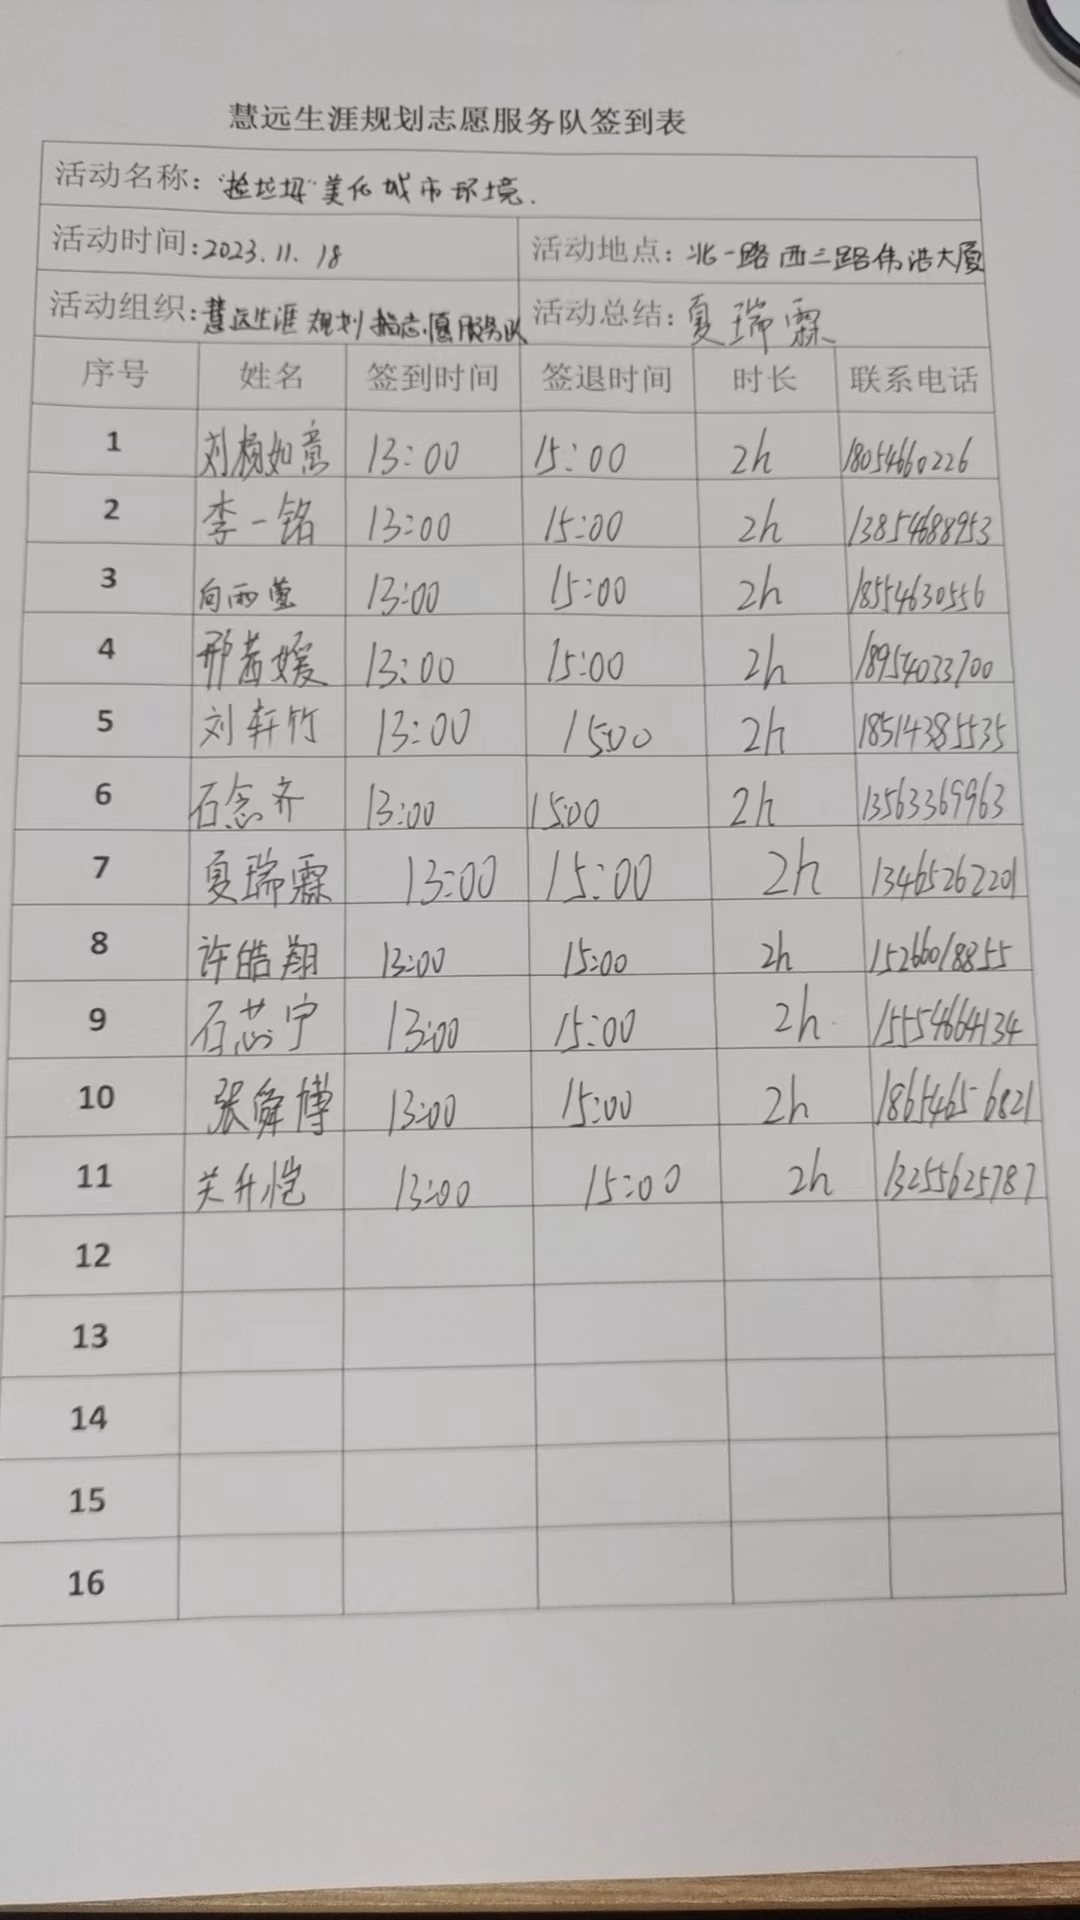 慧远生涯规划志愿服务队签到表
活动名称：“捡垃圾”美化城市环境.
活动时间：2023.11.18 活动地点：北一路西三路伟浩大厦
活动组织：慧远生涯规划指志愿服务队 活动总结：夏瑞霖
序号 姓名 签到时间 签退时间 时长 联系电话
1 刘杨如意 13:00 15:00 2h 18054660226
2 李一铭 13:00 15:00 2h 13854688953
3 向雨萱 13:00 15:00 2h 18554630556
4 邢茜媛 13:00 15:00 2h 18954033700
5 刘轩竹 13:00 15:00 2h 18514385535
6 石念齐 13:00 15:00 2h 13563369963
7 夏瑞霖 13:00 15:00 2h 13465262201
8 许皓翔 13:00 15:00 2h 15266018855
9 石芯宁 13:00 15:00 2h 15554664134
10 张舜博 13:00 15:00 2h 18654656821
11 关升恺 13:00 15:00 2h 13255625787
12
13
14
15
16